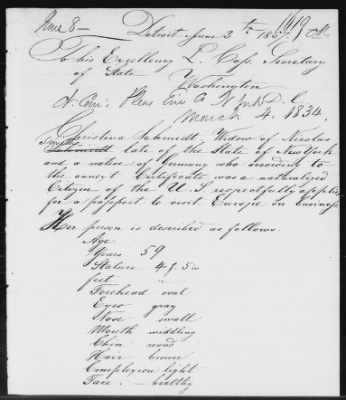 June 8 —
Detroit June 3th 1857.
To his Excellency L. Cass, Secretary
of State
Washington
D. C.
March 4. 1834.
Christina Schmidt, Widow of Nicolas
late of the State of New York
and a native of Germany who according to
the annext Certificate was a naturalized
Citizen of the U. S respectfully applies
for a passport to visit Europe on business
Her person is described as follows.
Age
Years 59
Stature 4 f. 5 in
feet "
Forehead oval
Eyes gray
Nose small
Mouth middling
Chin round
Hair brown
Complexion light
Face. — healthy